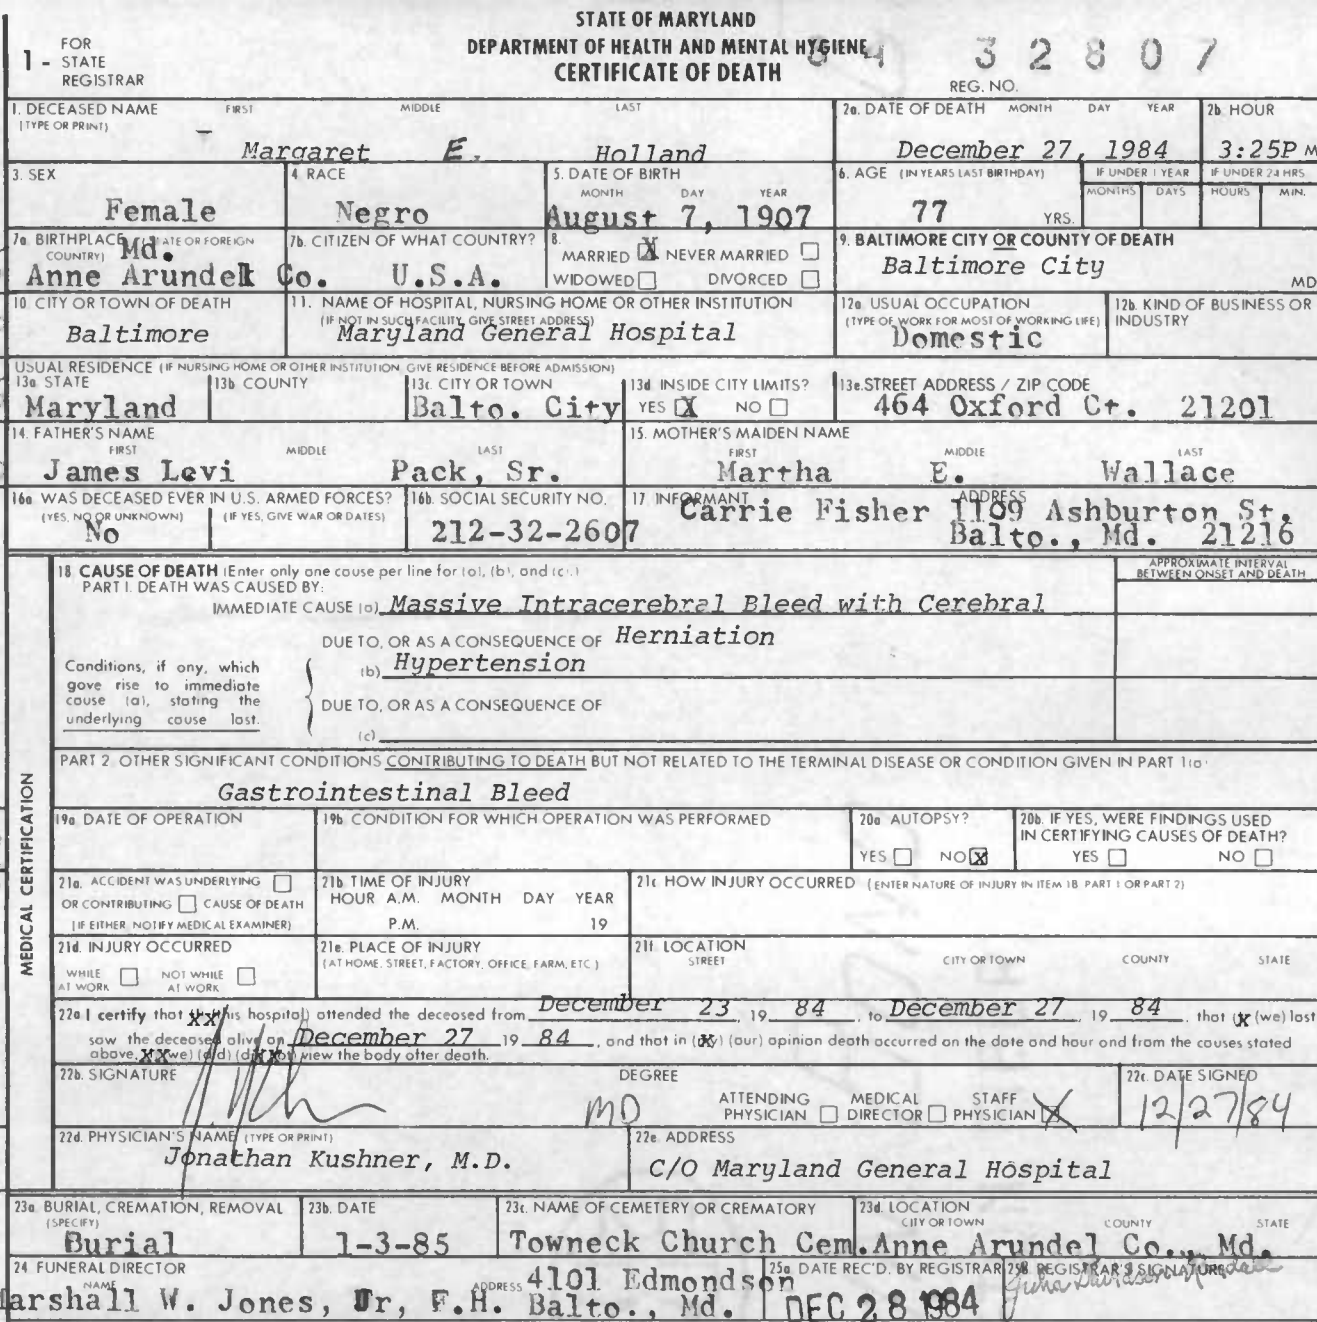 STATE OF MARYLAND
DEPARTMENT OF HEALTH AND MENTAL HYGIENE
CERTIFICATE OF DEATH
1 - FOR STATE REGISTRAR
84 32807
REG. NO.
1. DECEASED NAME FIRST MIDDLE LAST
(TYPE OR PRINT)
Margaret E. Holland
2a. DATE OF DEATH MONTH DAY YEAR
December 27, 1984
2b. HOUR
3:25P M
3. SEX
Female
4. RACE
Negro
5. DATE OF BIRTH
MONTH DAY YEAR
August 7, 1907
6. AGE (IN YEARS LAST BIRTHDAY)
77 YRS.
IF UNDER 1 YEAR
MONTHS DAYS
IF UNDER 24 HRS
HOURS MIN.
7a. BIRTHPLACE (STATE OR FOREIGN
COUNTRY) Md.
Anne Arundel Co.
7b. CITIZEN OF WHAT COUNTRY?
U.S.A.
8.
MARRIED X NEVER MARRIED
WIDOWED DIVORCED
9. BALTIMORE CITY OR COUNTY OF DEATH
Baltimore City
MD
10. CITY OR TOWN OF DEATH
Baltimore
11. NAME OF HOSPITAL, NURSING HOME OR OTHER INSTITUTION
(IF NOT IN SUCH FACILITY, GIVE STREET ADDRESS)
Maryland General Hospital
12a. USUAL OCCUPATION
(TYPE OF WORK FOR MOST OF WORKING LIFE)
Domestic
12b. KIND OF BUSINESS OR
INDUSTRY
USUAL RESIDENCE (IF NURSING HOME OR OTHER INSTITUTION GIVE RESIDENCE BEFORE ADMISSION)
13a. STATE
Maryland
13b. COUNTY
13c. CITY OR TOWN
Balto. City
13d. INSIDE CITY LIMITS?
YES X NO
13e. STREET ADDRESS / ZIP CODE
464 Oxford Ct. 21201
14. FATHER'S NAME
FIRST MIDDLE LAST
James Levi Pack, Sr.
15. MOTHER'S MAIDEN NAME
FIRST MIDDLE LAST
Martha E. Wallace
16a. WAS DECEASED EVER IN U.S. ARMED FORCES?
(YES, NO OR UNKNOWN) (IF YES, GIVE WAR OR DATES)
No
16b. SOCIAL SECURITY NO.
212-32-2607
17. INFORMANT ADDRESS
Carrie Fisher 1109 Ashburton St.
Balto., Md. 21216
MEDICAL CERTIFICATION
18 CAUSE OF DEATH (Enter only one cause per line for (a), (b), and (c).)
APPROXIMATE INTERVAL
BETWEEN ONSET AND DEATH
PART I. DEATH WAS CAUSED BY:
IMMEDIATE CAUSE (a) Massive Intracerebral Bleed with Cerebral
DUE TO, OR AS A CONSEQUENCE OF Herniation
Conditions, if any, which
gave rise to immediate
cause (a), stating the
underlying cause last.
(b) Hypertension
DUE TO, OR AS A CONSEQUENCE OF
(c)
PART 2 OTHER SIGNIFICANT CONDITIONS CONTRIBUTING TO DEATH BUT NOT RELATED TO THE TERMINAL DISEASE OR CONDITION GIVEN IN PART 1(a)
Gastrointestinal Bleed
19a. DATE OF OPERATION
19b. CONDITION FOR WHICH OPERATION WAS PERFORMED
20a. AUTOPSY?
YES NO X
20b. IF YES, WERE FINDINGS USED
IN CERTIFYING CAUSES OF DEATH?
YES NO
21a. ACCIDENT WAS UNDERLYING
OR CONTRIBUTING CAUSE OF DEATH
(IF EITHER, NOTIFY MEDICAL EXAMINER)
21b. TIME OF INJURY
HOUR A.M. MONTH DAY YEAR
P.M. 19
21c. HOW INJURY OCCURRED (ENTER NATURE OF INJURY IN ITEM 18 PART 1 OR PART 2)
21d. INJURY OCCURRED
WHILE AT WORK NOT WHILE AT WORK
21e. PLACE OF INJURY
(AT HOME, STREET, FACTORY, OFFICE, FARM, ETC.)
21f. LOCATION
STREET CITY OR TOWN COUNTY STATE
22a. I certify that XX this hospital) attended the deceased from December 23, 19 84, to December 27, 19 84, that (X (we) last
saw the deceased alive on December 27 19 84, and that in (XX) (our) opinion death occurred on the date and hour and from the causes stated
above, XX we) (did) (dXX not) view the body after death.
22b. SIGNATURE
DEGREE
MD
ATTENDING PHYSICIAN MEDICAL DIRECTOR STAFF PHYSICIAN X
22c. DATE SIGNED
12/27/84
22d. PHYSICIAN'S NAME (TYPE OR PRINT)
Jonathan Kushner, M.D.
22e. ADDRESS
C/O Maryland General Hospital
23a. BURIAL, CREMATION, REMOVAL
(SPECIFY)
Burial
23b. DATE
1-3-85
23c. NAME OF CEMETERY OR CREMATORY
Towneck Church Cem.
23d. LOCATION
CITY OR TOWN COUNTY STATE
Anne Arundel Co., Md.
24 FUNERAL DIRECTOR
NAME ADDRESS
Marshall W. Jones, Jr, F.H. 4101 Edmondson
Balto., Md.
25a. DATE REC'D. BY REGISTRAR
DEC 28 1984
25b. REGISTRAR'S SIGNATURE